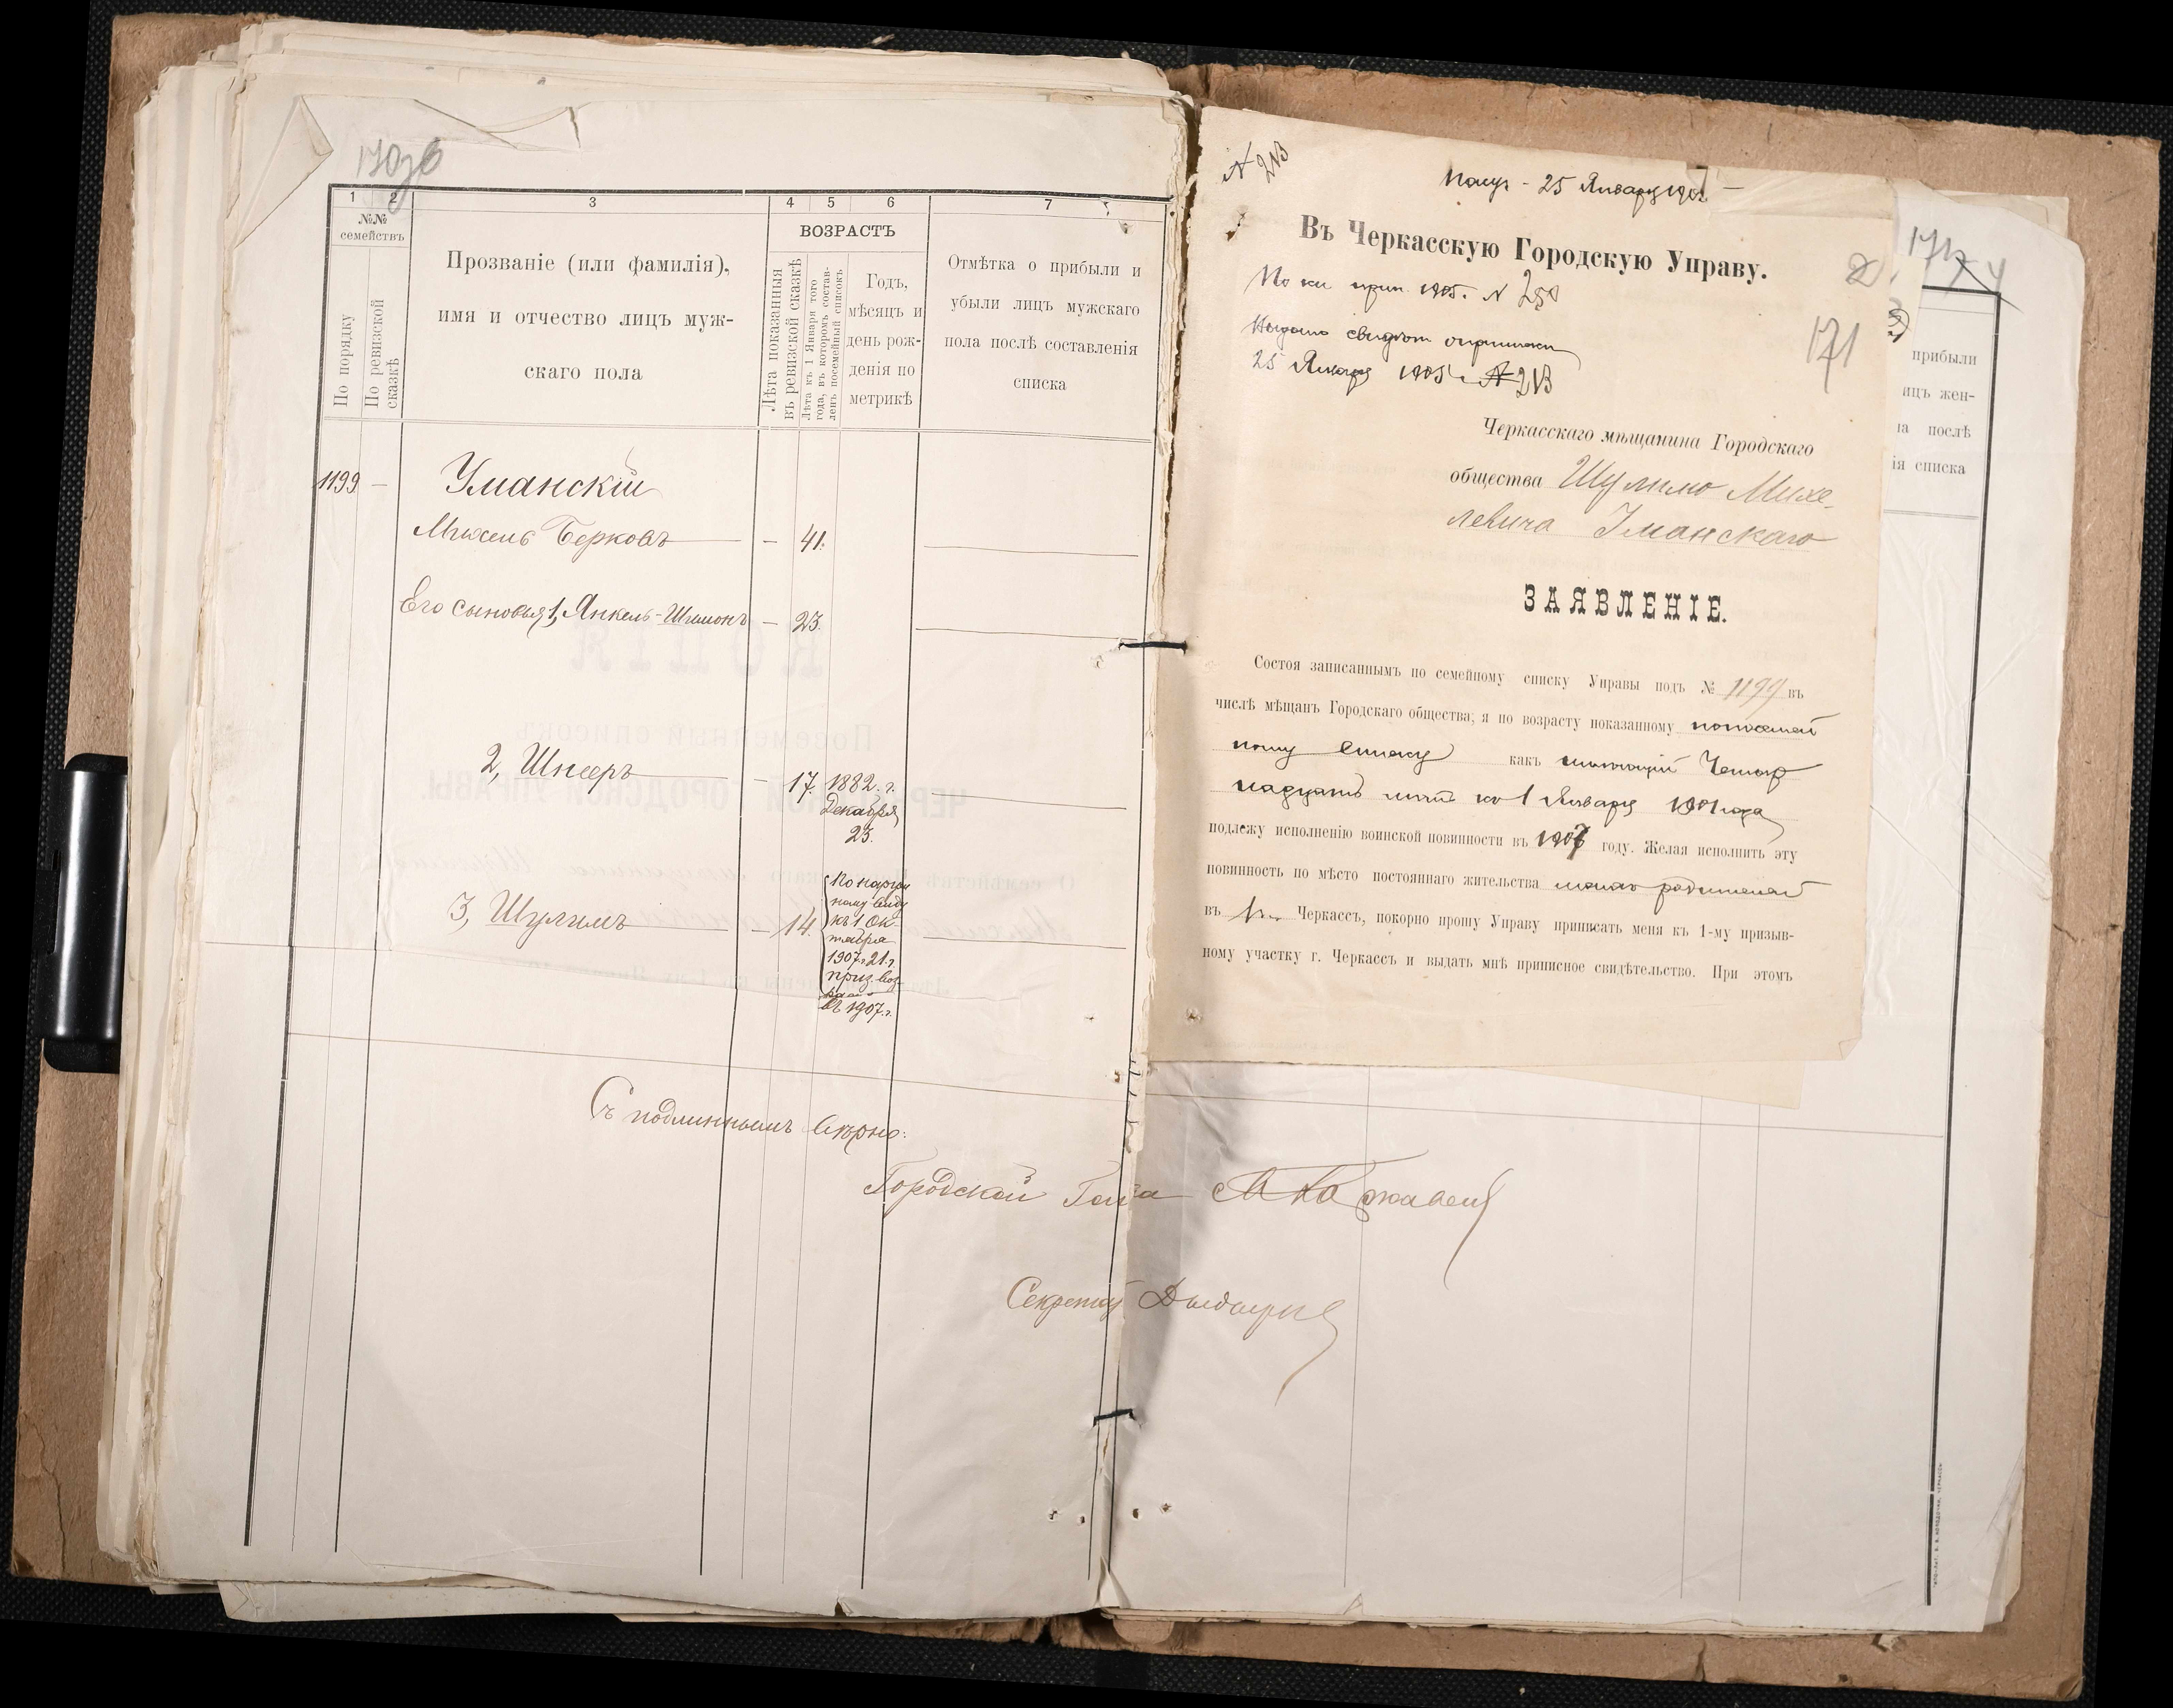 1 2 3 4 5 6 7
№№ семействъ
По порядку
По ревизской сказкѣ
Прозваніе (или фамилія),
имя и отчество лицъ муж-
скаго пола
ВОЗРАСТЪ
Лѣта показанныя въ ревизской сказкѣ
Лѣта къ 1 Января того года, въ которомъ составленъ посемейный списокъ
Годъ,
мѣсяцъ и
день рож-
денія по
метрикѣ
Отмѣтка о прибыли и
убыли лицъ мужскаго
пола послѣ составленія
списка
1199 — Уманскій
Михель Берковъ — 41.
Его сыновья 1, Янкель-Шлимонъ — 23.
2, Шнееръ — 17. 1882. г.
Декабря
23.
3, Шулимъ — 14.
По наруж
ному виду
къ 1 Ок-
тября
1907 г. 21. г.
приз.
въ 1907. г.
Съ подлиннымъ вѣрно:
Городской Голова
Секретарь
№ 213
25 Января
Въ Черкасскую Городскую Управу.
1905. № 250
25 Января 1905 г. № 213
171
Черкасскаго мѣщанина Городскаго
общества Шулима Михе-
левича Уманскаго
ЗАЯВЛЕНІЕ.
Состоя записаннымъ по семейному списку Управы подъ № 1199 въ
числѣ мѣщанъ Городскаго общества, я по возрасту показанному по посемей
ному списку какъ имѣющій Четыр
надцать лѣтъ къ 1 Января 1901 года
подлежу исполненію воинской повинности въ 1907 году. Желая исполнить эту
повинность по мѣсто постояннаго жительства моихъ родителей
въ г. Черкассъ, покорно прошу Управу приписать меня къ 1-му призыв-
ному участку г. Черкассъ и выдать мнѣ приписное свидѣтельство. При этомъ
прибыли
ицъ жен-
а послѣ
ія списка